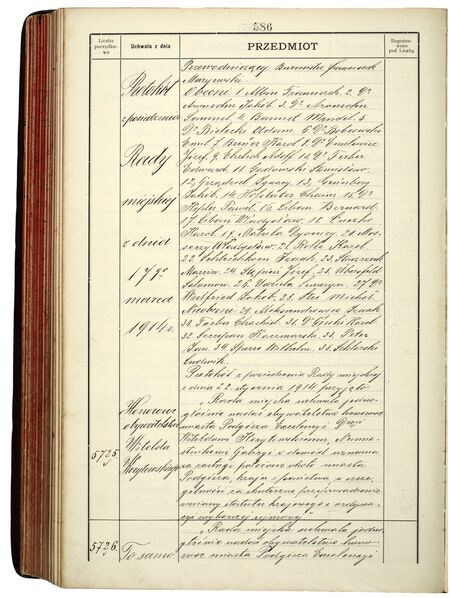 586
Liczba porządkowa
Uchwała z dnia
PRZEDMIOT
Regestrowano pod Liczbą
Protokół
z posiedzenia
Rady
miejskiej
z dnia
17go
marca
1914 r.
Przewodniczący Burmistrz Franciszek
Maryewski
Obecni: 1. Albin Franciszek, 2. Dr
Jakób, 3. Dr Aronsohn
Samuel, 4. Mendel, 5.
Dr Bielecki Adam, 6. Dr Bobrowski
Emil, 7. Karol, 8. Dr
Józef, 9. Ehrlich Adolf, 10. Dr Ferber
Edward, 11. Stanisław,
12. Ignacy, 13. Grünberg
Jakób, 14. Chaim, 15. Dr
Paweł, 16. Liban Bernard,
17. Liban Władysław, 18.
Karol, 19. Matula Dyonizy, 20.
Władysław, 21. Rolle Karol,
22. Izaak, 23.
Marcin, 24. Stępień Józef, 25.
Salomon, 26. Seweryn, 27. Dr
Jakób, 28. Michał.
Nieobecni: 29. Aleksandrowicz Izaak
30. Färber 31. Dr Górski Karol
32. Szczepan Kaczmarski, 33. Peter
Jan, 34. Wilhelm, 35.
Ludwik.
Protokół z posiedzenia Rady miejskiej
z dnia 22. stycznia 1914 przyjęto.
5725.
Honorowe
obywatelstwo
Witolda
Korytowskiego
„Rada miejska uchwala jedno-
głośnie nadać obywatelstwo honorowe
miasta Podgórza Excelencyi Drowi
Witoldowi Korytowskiemu, Namie-
stnikowi Galicyi w dowód uznania
za zasługi położone około miasta
Podgórza, kraju i państwa, w szcze-
gólności za skuteczne przeprowadzenie
zmiany statutu krajowego i ordyna-
cyi wyborczej sejmowej"
5726.
To samo
„Rada miejska uchwala jedno-
głośnie nadać obywatelstwo hono-
rowe miasta Podgórza Excelencyi